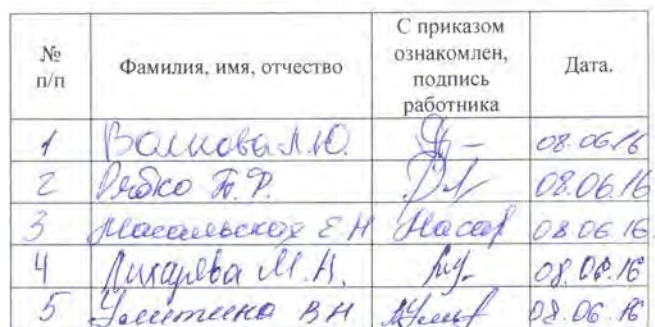 № п/п Фамилия, имя, отчество С приказом ознакомлен, подпись работника Дата.
1 Волкова Л.Ю. 08.06.16
2 Рябко Т.Ф. 08.06.16
3 Е.Н 08.06.16.
4 Лихарева М.А. 08.06.16
5 Улитина В.Н 08.06.16